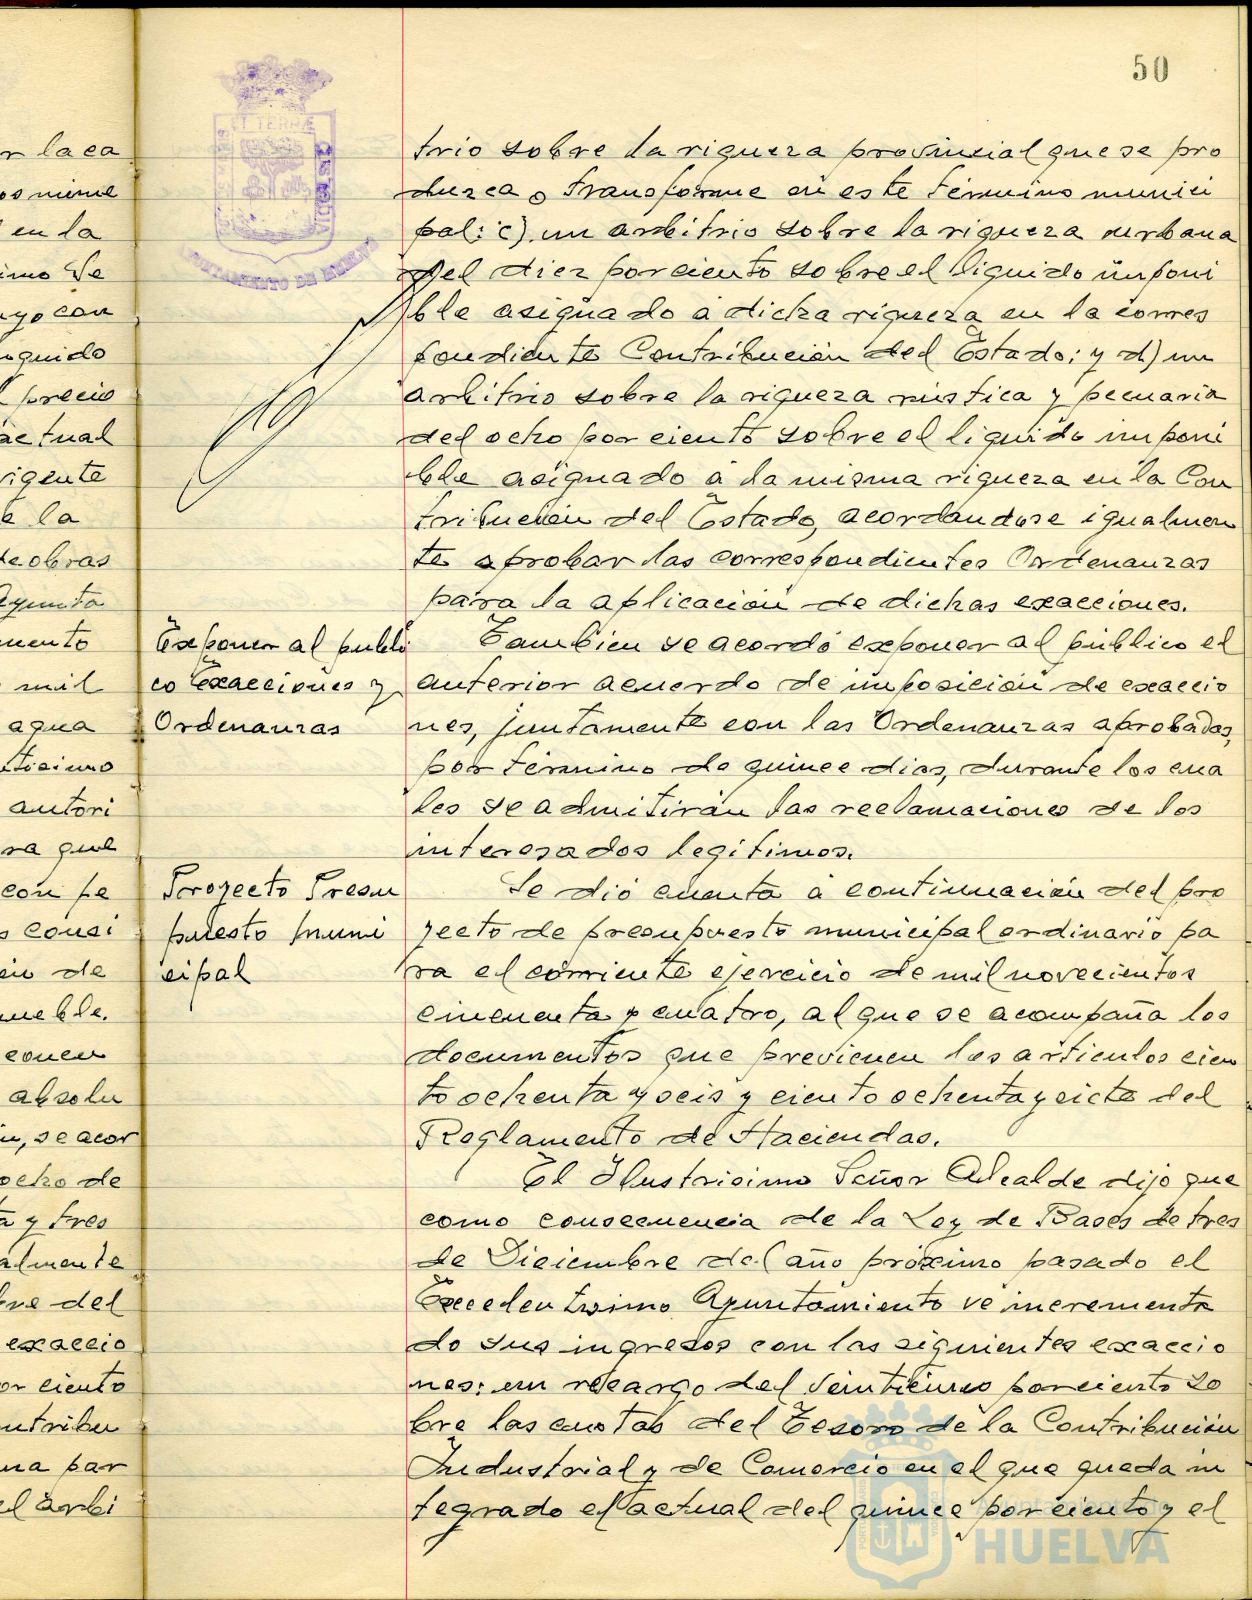 50
trio sobre la riqueza provincial que se pro
duzca o transforme en este término munici
pal: c) un arbitrio sobre la riqueza urbana
del diez por ciento sobre el líquido imponi
ble asignado a dicha riqueza en la corres
pondiente Contribución del Estado; y d) un
arbitrio sobre la riqueza rústica y pecuaria
del ocho por ciento sobre el líquido imponi
ble asignado a la misma riqueza en la Con
tribución del Estado, acordandose igualmen
te aprobar las correspondientes Ordenanzas
para la aplicación de dichas exacciones.
Exponer al públi
co Exacciones y
Ordenanzas
Tambien se acordó exponer al público el
anterior acuerdo de imposición de exaccio
nes, juntamente con las Ordenanzas aprobadas,
por término de quince dias, durante los cua
les se admitirán las reclamaciones de los
interesados legítimos.
Proyecto Presu
puesto muni
cipal
Se dió cuenta a continuación del pro
yecto de presupuesto municipal ordinario pa
ra el corriente ejercicio de mil novecientos
cincuenta y cuatro, al que se acompaña los
documentos que previenen los artículos cien
to ochenta y seis y ciento ochenta y siete del
Reglamento de Haciendas.
El Ilustrisimo Señor Alcalde dijo que
como consecuencia de la Ley de Bases de tres
de Diciembre del año próximo pasado el
Excelentisimo Ayuntamiento ve incrementa
do sus ingresos con las siguientes exaccio
nes: un recargo del veinticinco por ciento so
bre las cuotas del Tesoro de la Contribución
Industrial y de Comercio en el que queda in
tegrado el actual del quince por ciento y el
r la ca
os mine
en la
imo Se
uyo con
quido
precio
actual
vigente
e la
de obras
Ayunta
mento
mil
agua
ticimo
autori
ra que
con pe
s consi
in de
mueble.
concu
absolu
in, se acor
ocho de
ta y tres
almente
bre del
exaccio
or ciento
ntribu
ma par
el arbi
Ayuntamiento de
HUELVA